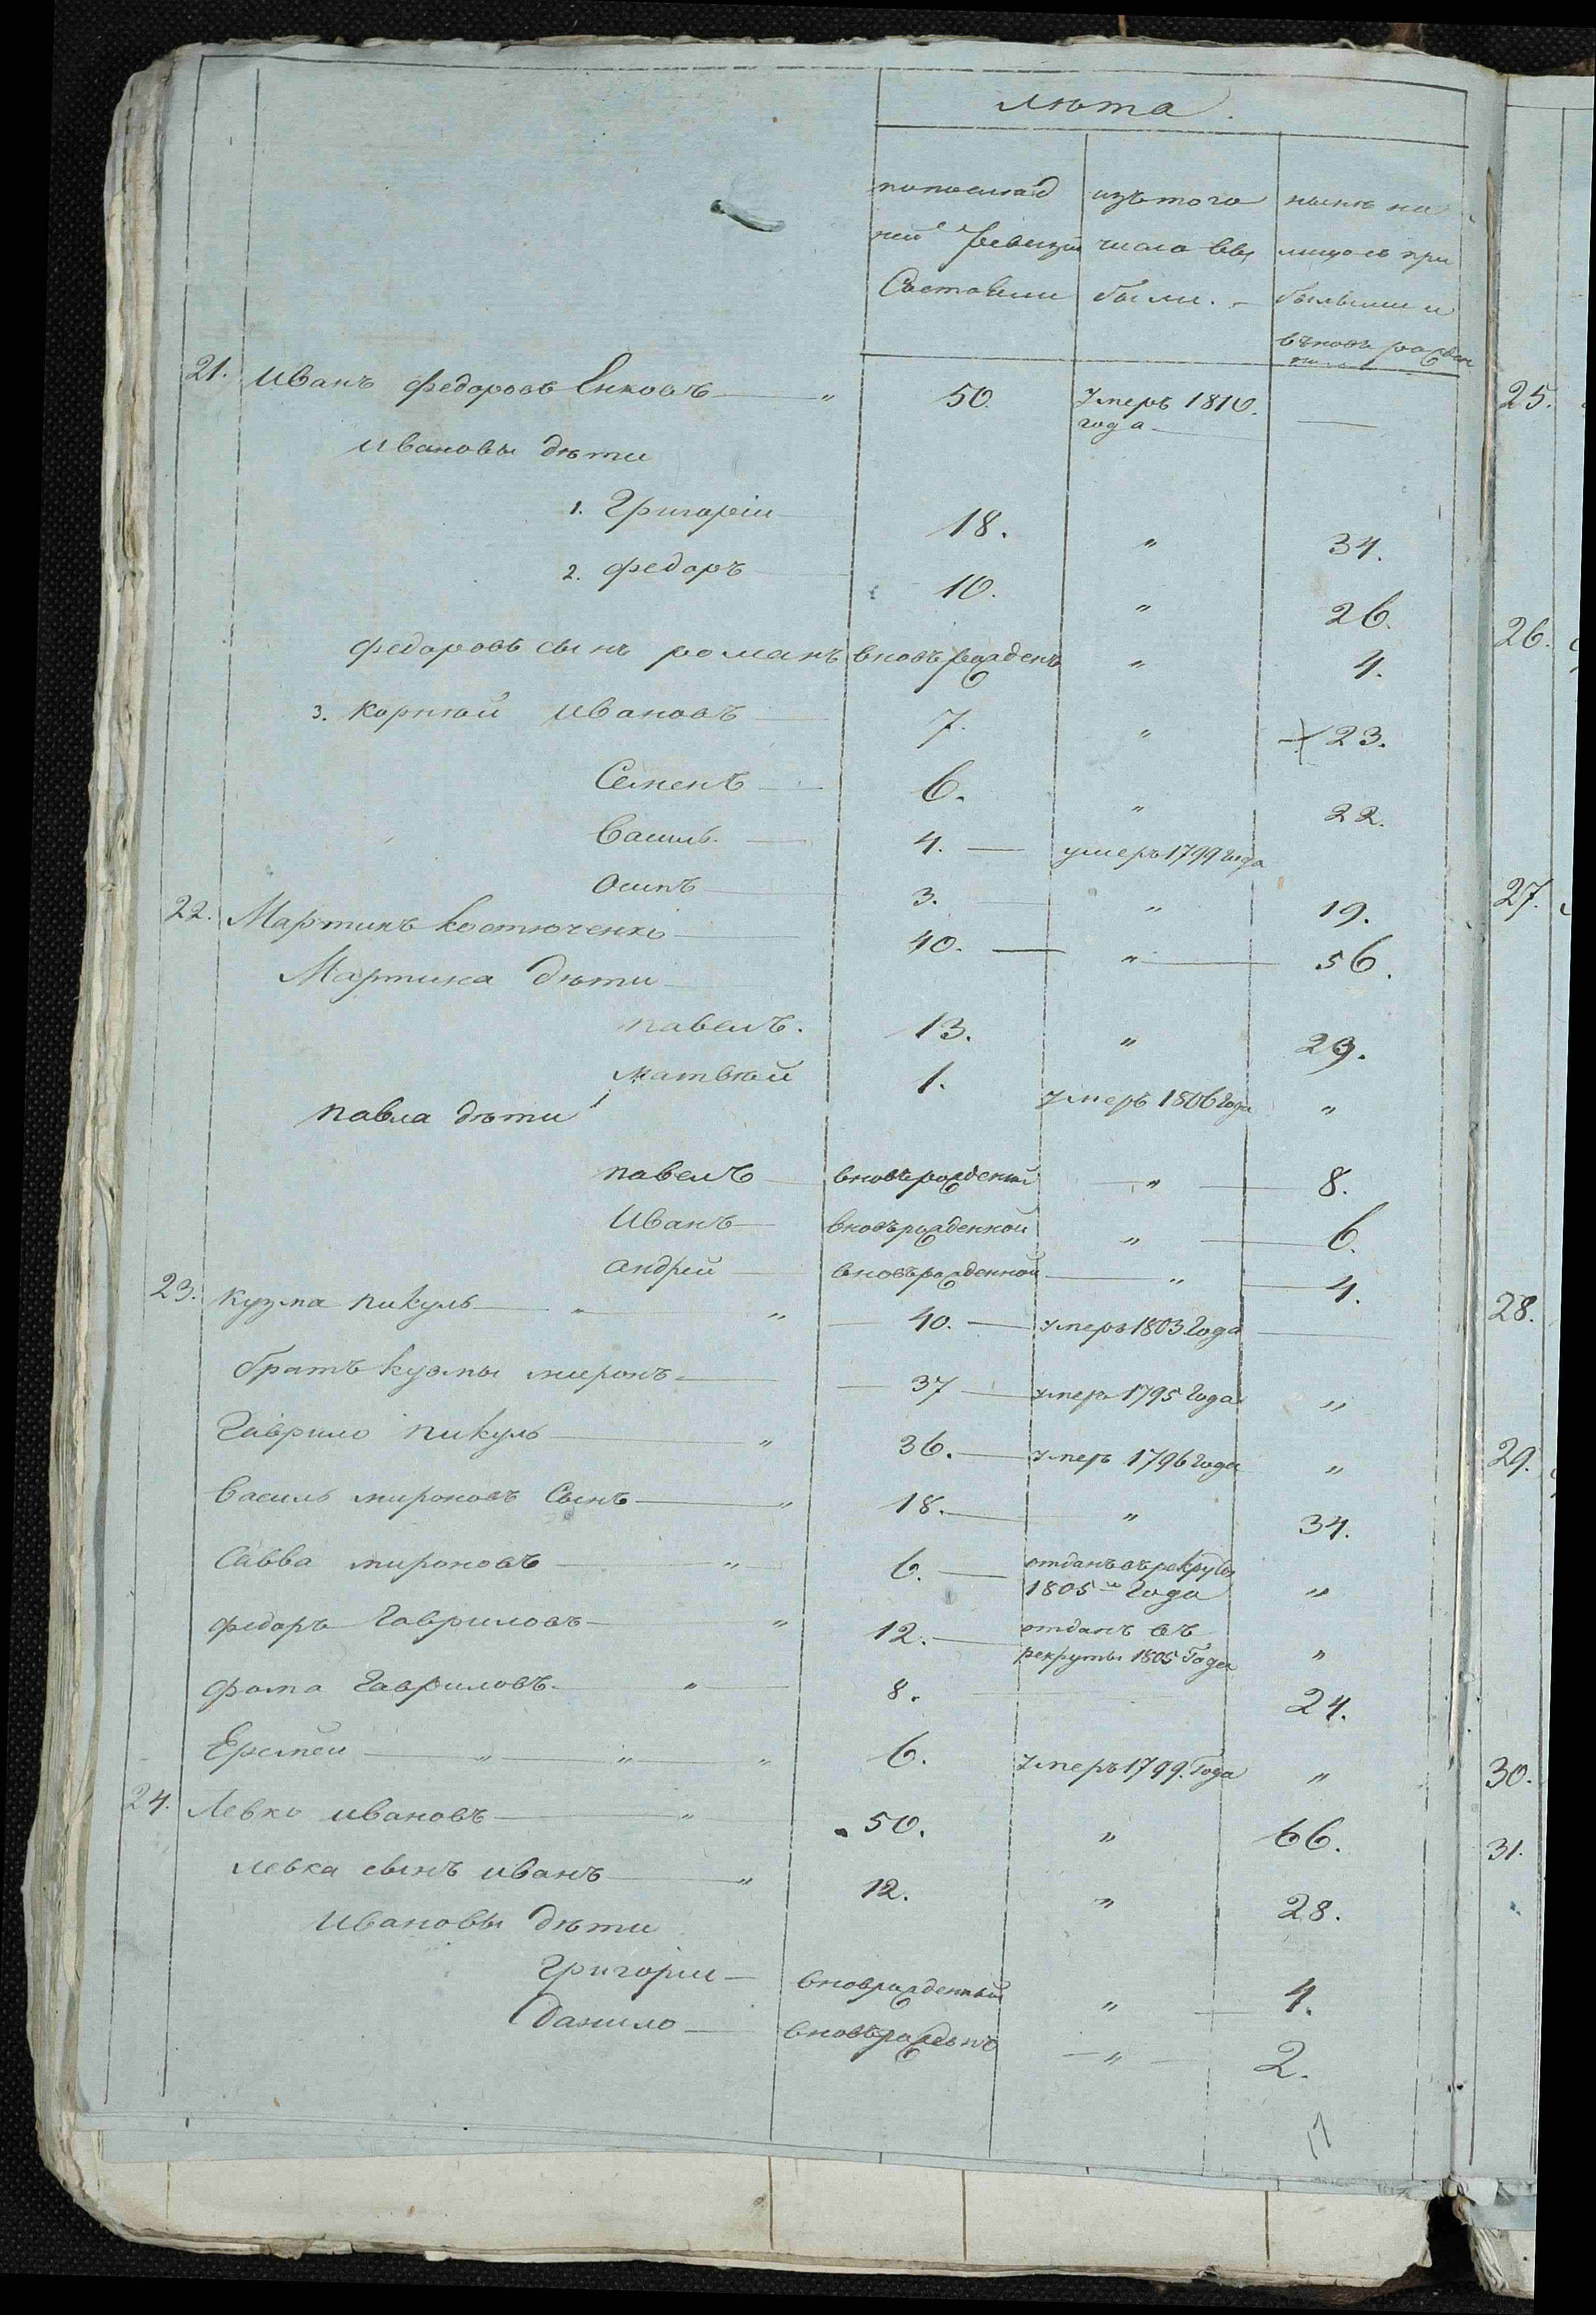 лѣта.
попослѣд изътого нынѣ на
ней Ревизіи числа вы лицо съ при
Состояли были. — былыми и
вѣновь рожден
21. Иванъ Федоровъ Енковъ — „ 50. Умеръ 1810. —
года —
Ивановы дѣти
1. Григоріи 18. „ 34.
2. Федоръ 10. „ 26.
Федоровъ сынъ романъ вновърожденъ „ 4.
3. Корнѣй Ивановъ 7. „ 23.
Семенъ 6. „ 22.
Василь. — 4. — умеръ 1799 года
Осипъ 3. — „ 19.
22. Мартинъ Костюченко 40. — „ — 56.
Мартина дѣти
павелъ. 13. „ 29.
матвѣй 1. Умеръ 1806 Года „
павла дѣти
павелъ вновърожденій — „ — 8.
Иванъ вновърожденной „ — 6.
андрей вновърожденной — „ — 4.
23. Кузма пикуль — „ „ — 40. — умеръ 1803 Года —
братъ кузмы миронъ — 37 — умеръ 1795 Года „
Гаврило пикуль — „ 36. — умеръ 1796 Года „
Василь мироновъ Сынъ — „ 18. — „ 34.
Савва мироновъ — „ 6. — отданъ въ рекруты
1805 Года „
федоръ Гавриловъ — „ 12. — отданъ въ
рекруты 1805 Года „
фома Гавриловъ. — „ — 8. 24.
Еремей — „ — „ — „ 6. Умеръ 1799. Года „
24. Левко ивановъ — „ 50. „ 66.
левка сынъ иванъ — „ 12. „ 28.
Ивановы дѣти
Григории — вноврожденный „ — 4.
Данило — вновърожденъ — „ — 2.
25.
26.
27.
28.
29.
30.
31.